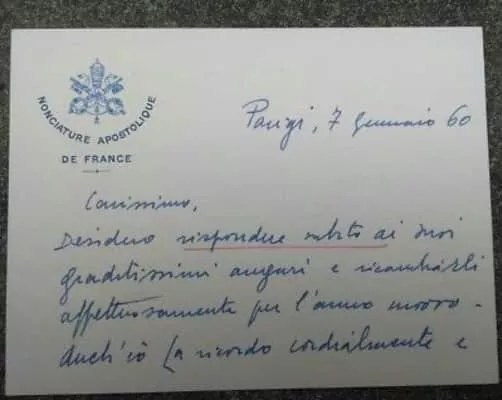 NONCIATURE APOSTOLIQUE
DE FRANCE
Parigi, 7 Gennaio 60
Carissimo,
Desidero rispondere subito ai suoi
graditissimi auguri e ricambiarli
affettuosamente per l'anno nuovo -
Anch'io La ricordo cordialmente e